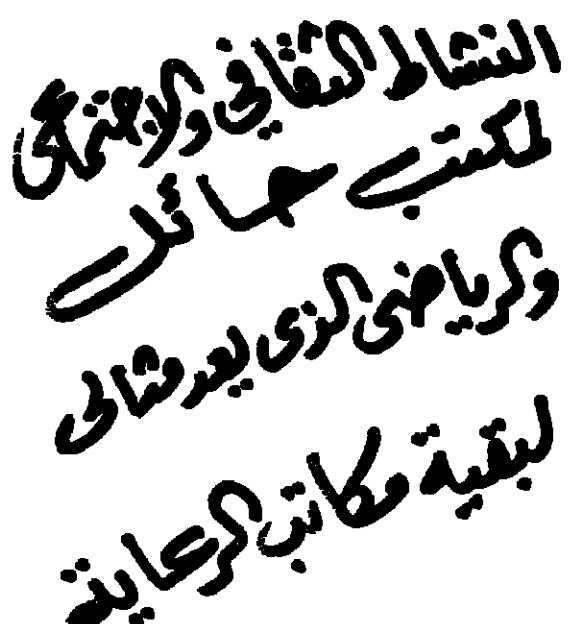 النشاط الثقافي والاجتماعى
لمكتب حائل
والرياضى الذى يعد مثالى
لبقية مكاتب الرعاية